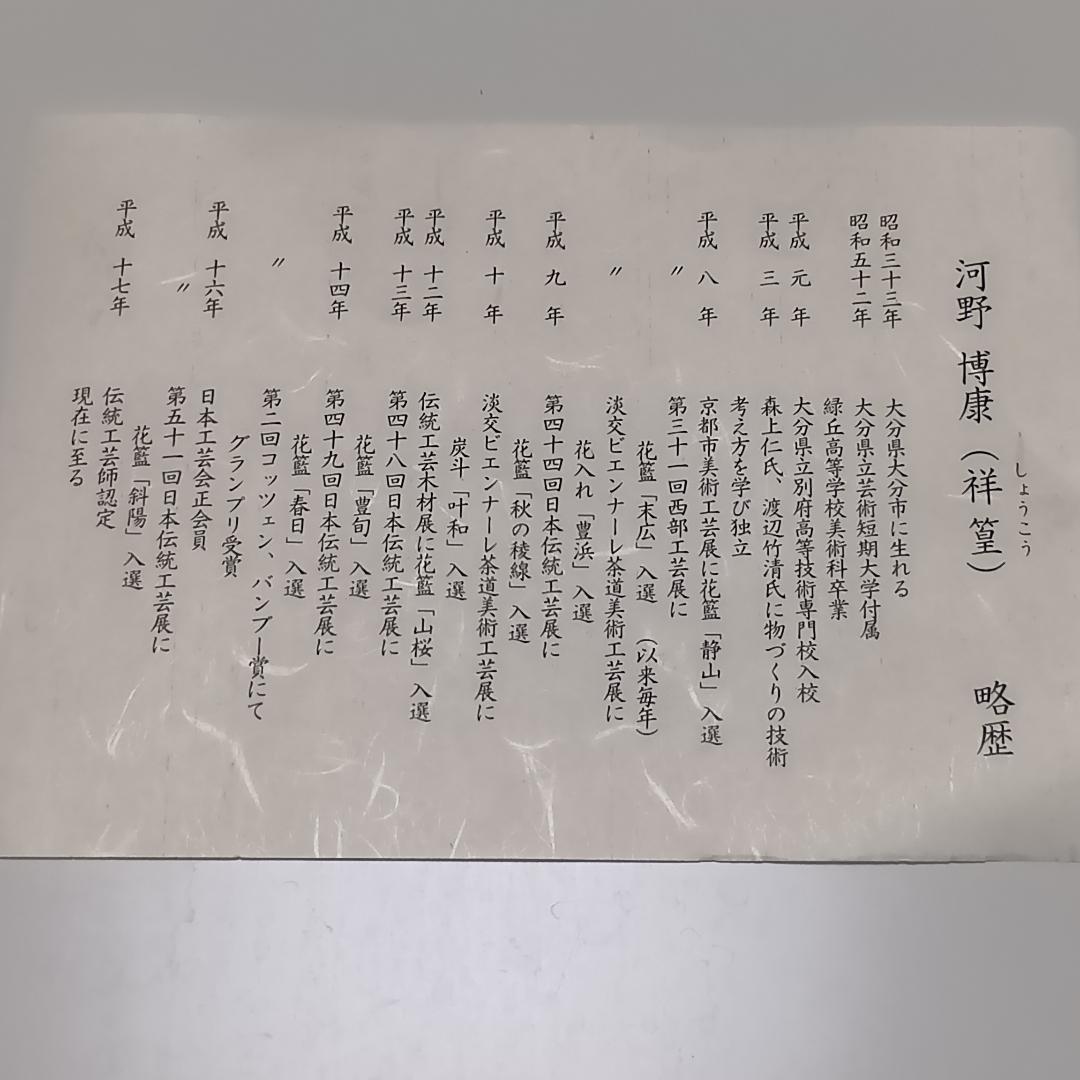 河野 博康(祥篁) 略歴
しょうこう
昭和三十三年 大分県大分市に生れる
昭和五十二年 大分県立芸術短期大学付属
緑丘高等学校美術科卒業
平成 元 年 大分県立別府高等技術専門校入校
平成 三 年 森上仁氏、渡辺竹清氏に物づくりの技術
考え方を学び独立
平成 八 年 京都市美術工芸展に花籃「静山」入選
〃 第三十一回西部工芸展に
花籃「末広」入選 (以来毎年)
〃 淡交ビエンナーレ茶道美術工芸展に
花入れ「豊浜」入選
平成 九 年 第四十四回日本伝統工芸展に
花籃「秋の稜線」入選
平成 十 年 淡交ビエンナーレ茶道美術工芸展に
炭斗「叶和」入選
平成 十二年 伝統工芸木材展に花籃「山桜」入選
平成 十三年 第四十八回日本伝統工芸展に
花籃「豊旬」入選
平成 十四年 第四十九回日本伝統工芸展に
花籃「春日」入選
〃 第二回コッツェン、バンブー賞にて
グランプリ受賞
平成 十六年 日本工芸会正会員
〃 第五十一回日本伝統工芸展に
花籃「斜陽」入選
平成 十七年 伝統工芸師認定
現在に至る